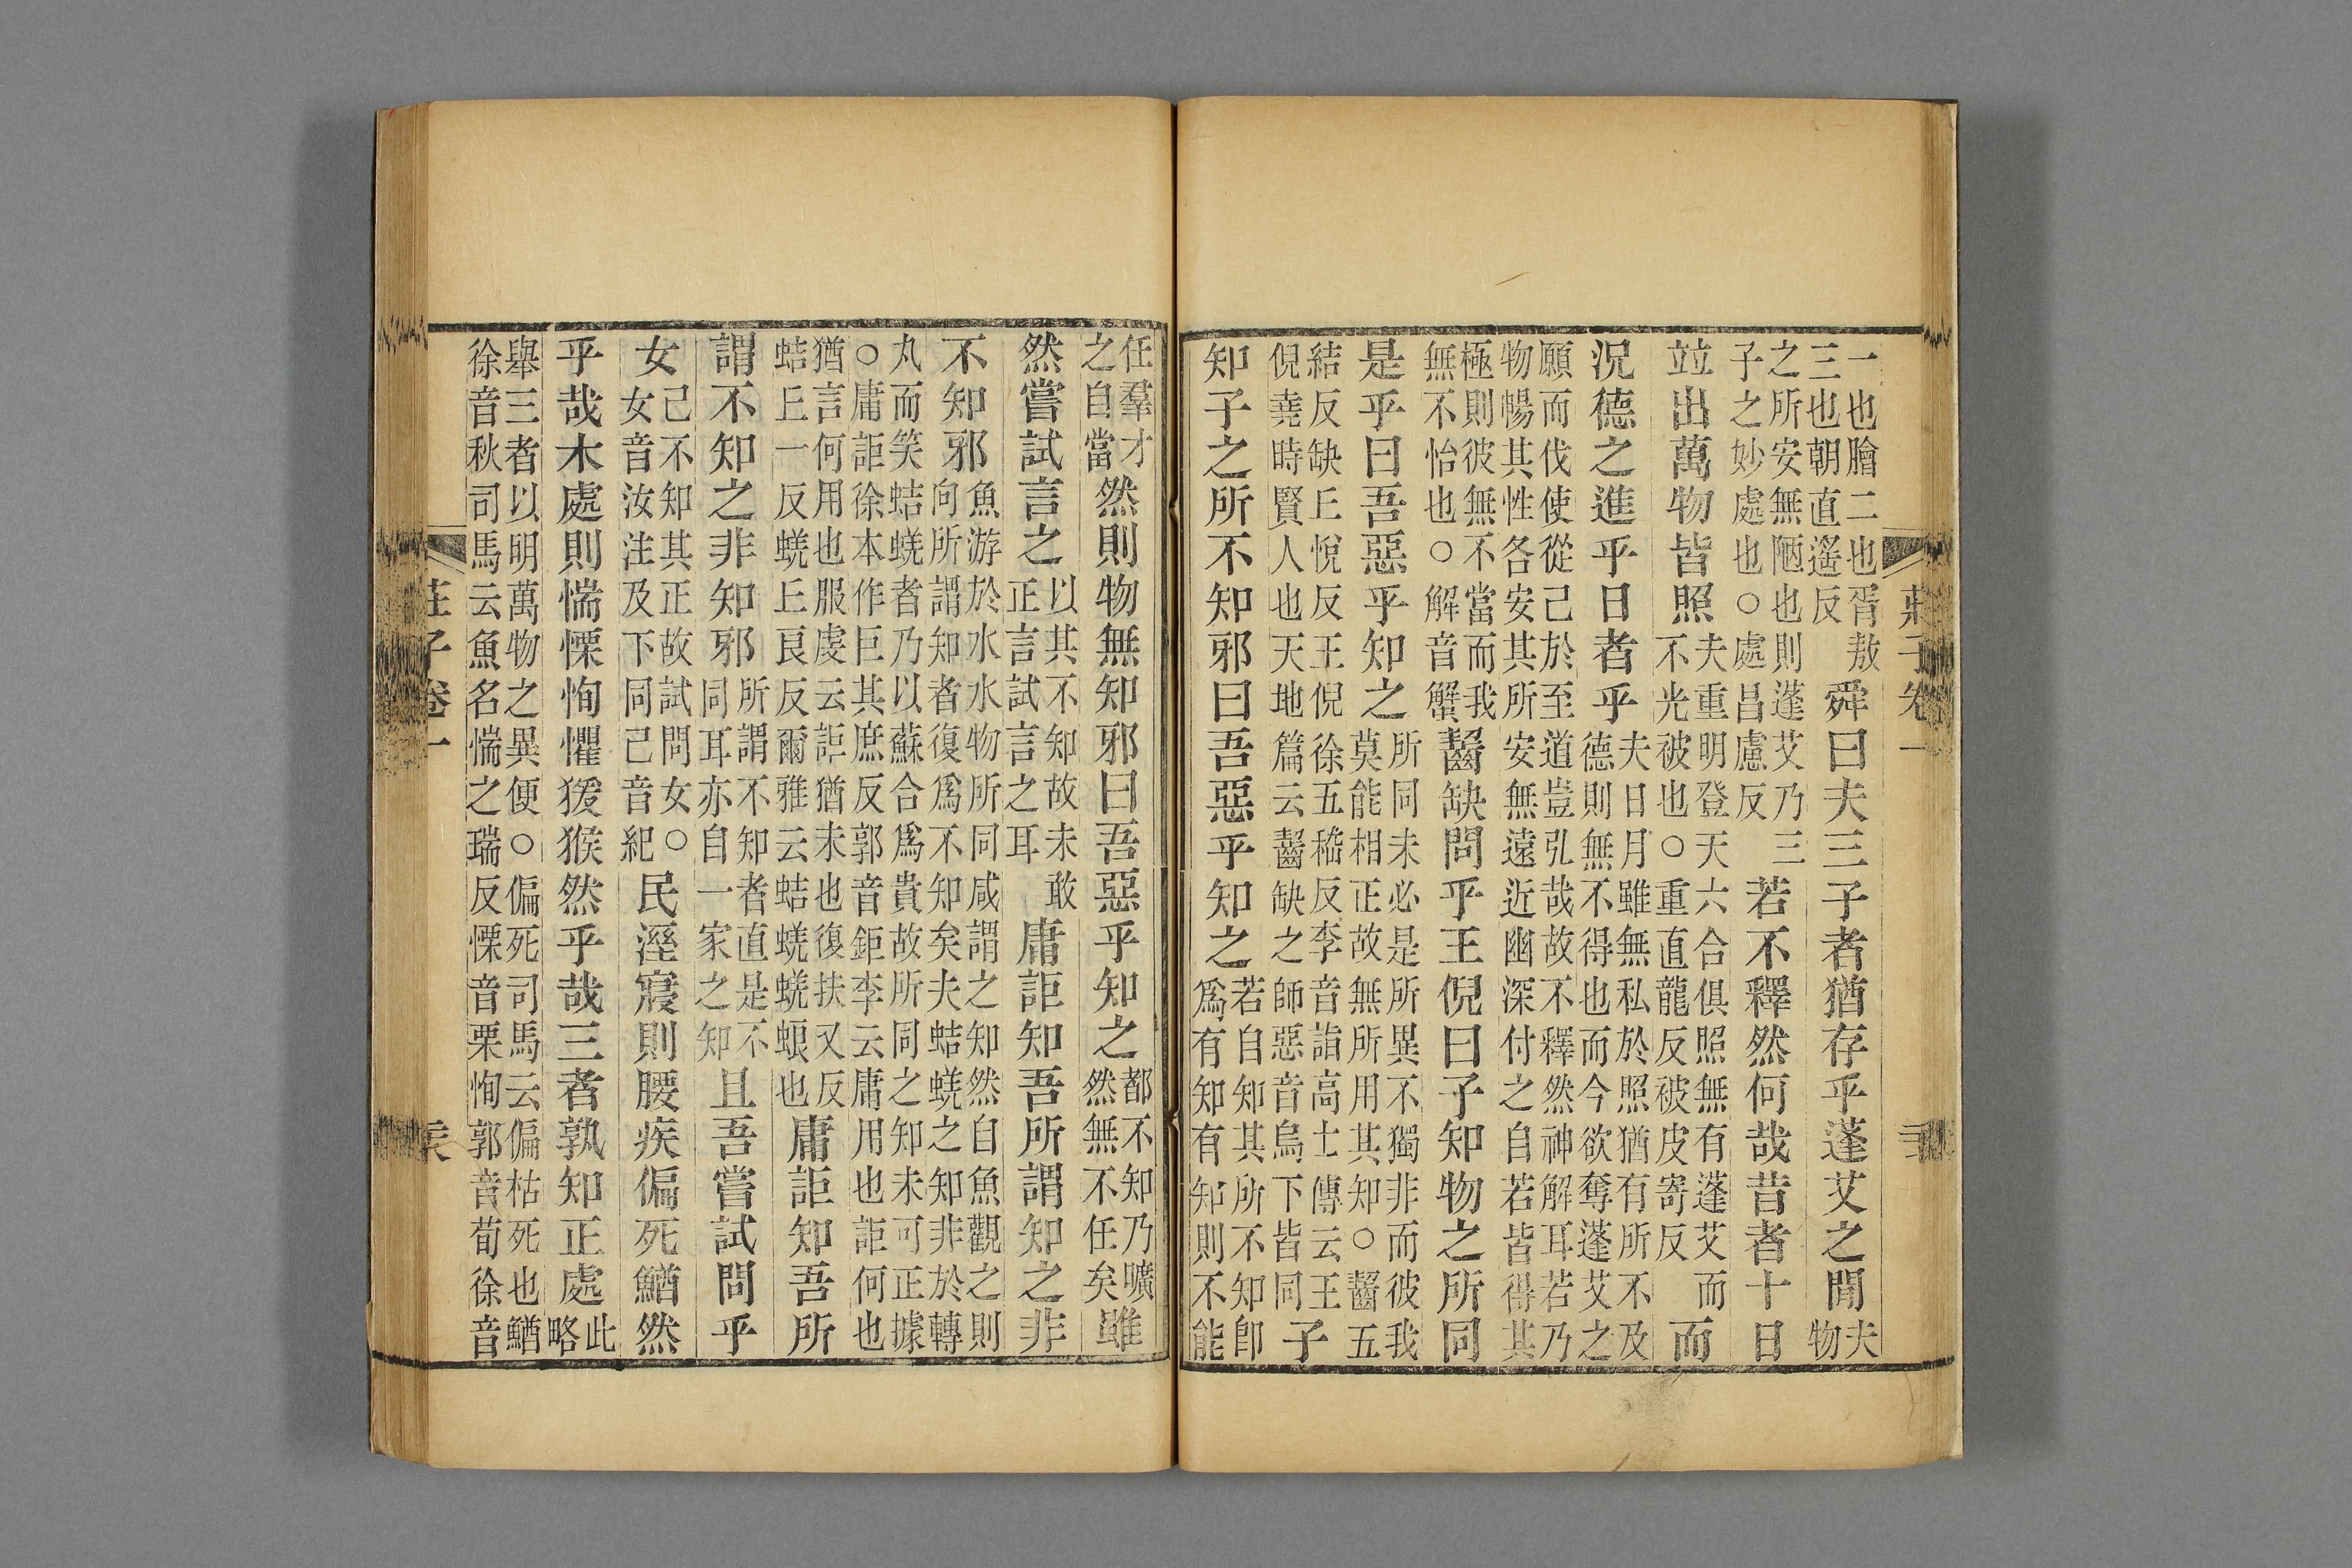 莊子卷一
一也膾二也胥敖
三也朝直遙反
舜曰夫三子者猶存乎蓬艾之閒
夫
物
之所安無陋也則蓬艾乃三
子之妙處也○處昌慮反
若不釋然何哉昔者十日
竝出萬物皆照
夫重明登天六合俱照無有蓬艾而
不光被也○重直龍反被皮寄反
而
況德之進乎日者乎
夫日月雖無私於照猶有所不及
德則無不得也而今欲奪蓬艾之
願而伐使從己於至道豈弘哉故不釋然神解耳若乃
物暢其性各安其所安無遠近幽深付之自若皆得其
極則彼無不當而我
無不怡也○解音蟹
齧缺問乎王倪曰子知物之所同
是乎曰吾惡乎知之
所同未必是所異不獨非而彼我
莫能相正故無所用其知○齧五
結反缺丘悅反王倪徐五嵇反李音詣高士傳云王
倪堯時賢人也天地篇云齧缺之師惡音烏下皆同
子
知子之所不知邪曰吾惡乎知之
若自知其所不知卽
爲有知有知則不能
任羣才
之自當
然則物無知邪曰吾惡乎知之
都不知乃曠
然無不任矣
雖
然嘗試言之
以其不知故未敢
正言試言之耳
庸詎知吾所謂知之非
不知邪
魚游於水水物所同咸謂之知然自魚觀之則
向所謂知者復爲不知矣夫蛣蜣之知非於轉
丸而笑蛣蜣者乃以蘇合爲貴故所同之知未可正據
○庸詎徐本作巨其庶反郭音鉅李云庸用也詎何也
猶言何用也服虔云詎猶未也復扶又反
蛣丘一反蜣丘良反爾雅云蛣蜣蜣蜋也
庸詎知吾所
謂不知之非知邪
所謂不知者直是不
同耳亦自一家之知
且吾嘗試問乎
女
己不知其正故試問女○
女音汝注及下同己音紀
民溼寢則腰疾偏死鰌然
乎哉木處則惴慄恂懼猨猴然乎哉三者孰知正處
此
略
舉三者以明萬物之異便○偏死司馬云偏枯死也鰌
徐音秋司馬云魚名惴之瑞反慄音栗恂郭音荀徐音
莊子卷一